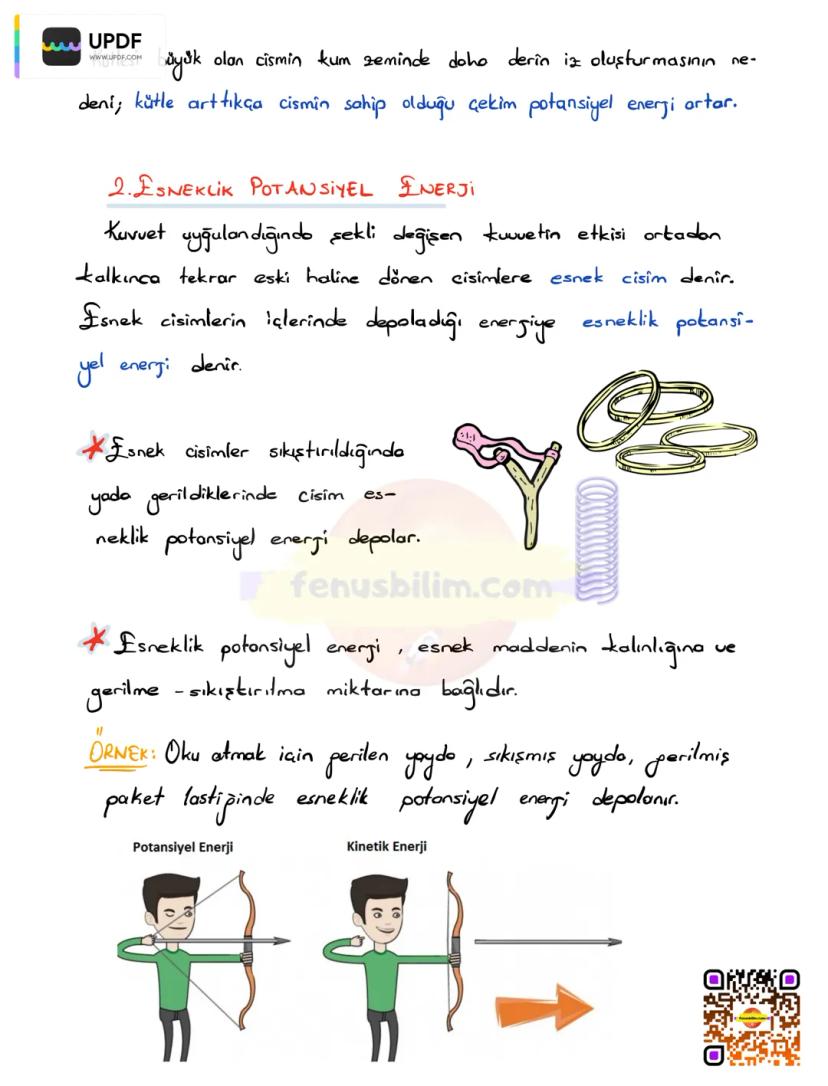 UPDF
WWW.UPDF.COM
büyük olan cismin kum zeminde daha derin iz oluşturmasının ne-
deni; kütle arttıkça cismin sahip olduğu çekim potansiyel enerji artar.
2.ESNEKLİK POTANSİYEL ENERJİ
Kuvvet uygulandığında şekli değişen kuvvetin etkisi ortadan
kalkınca tekrar eski haline dönen cisimlere esnek cisim denir.
Esnek cisimlerin içlerinde depoladığı energiye esneklik potansi-
yel enerji denir.
Esnek cisimler sıkıştırıldığında
yada gerildiklerinde cisim es-
neklik potansiyel enerji depolar.
fenusbilim.com
Esneklik potansiyel enerji , esnek maddenin kalınlığına ve
gerilme -sıkıştırılma miktarına bağlıdır.
ÖRNEK: Oku atmak için gerilen yayda, sıkışmış yayda, gerilmiş
paket lastiğinde esneklik potansiyel enerji depolanır.
Potansiyel Enerji Kinetik Enerji